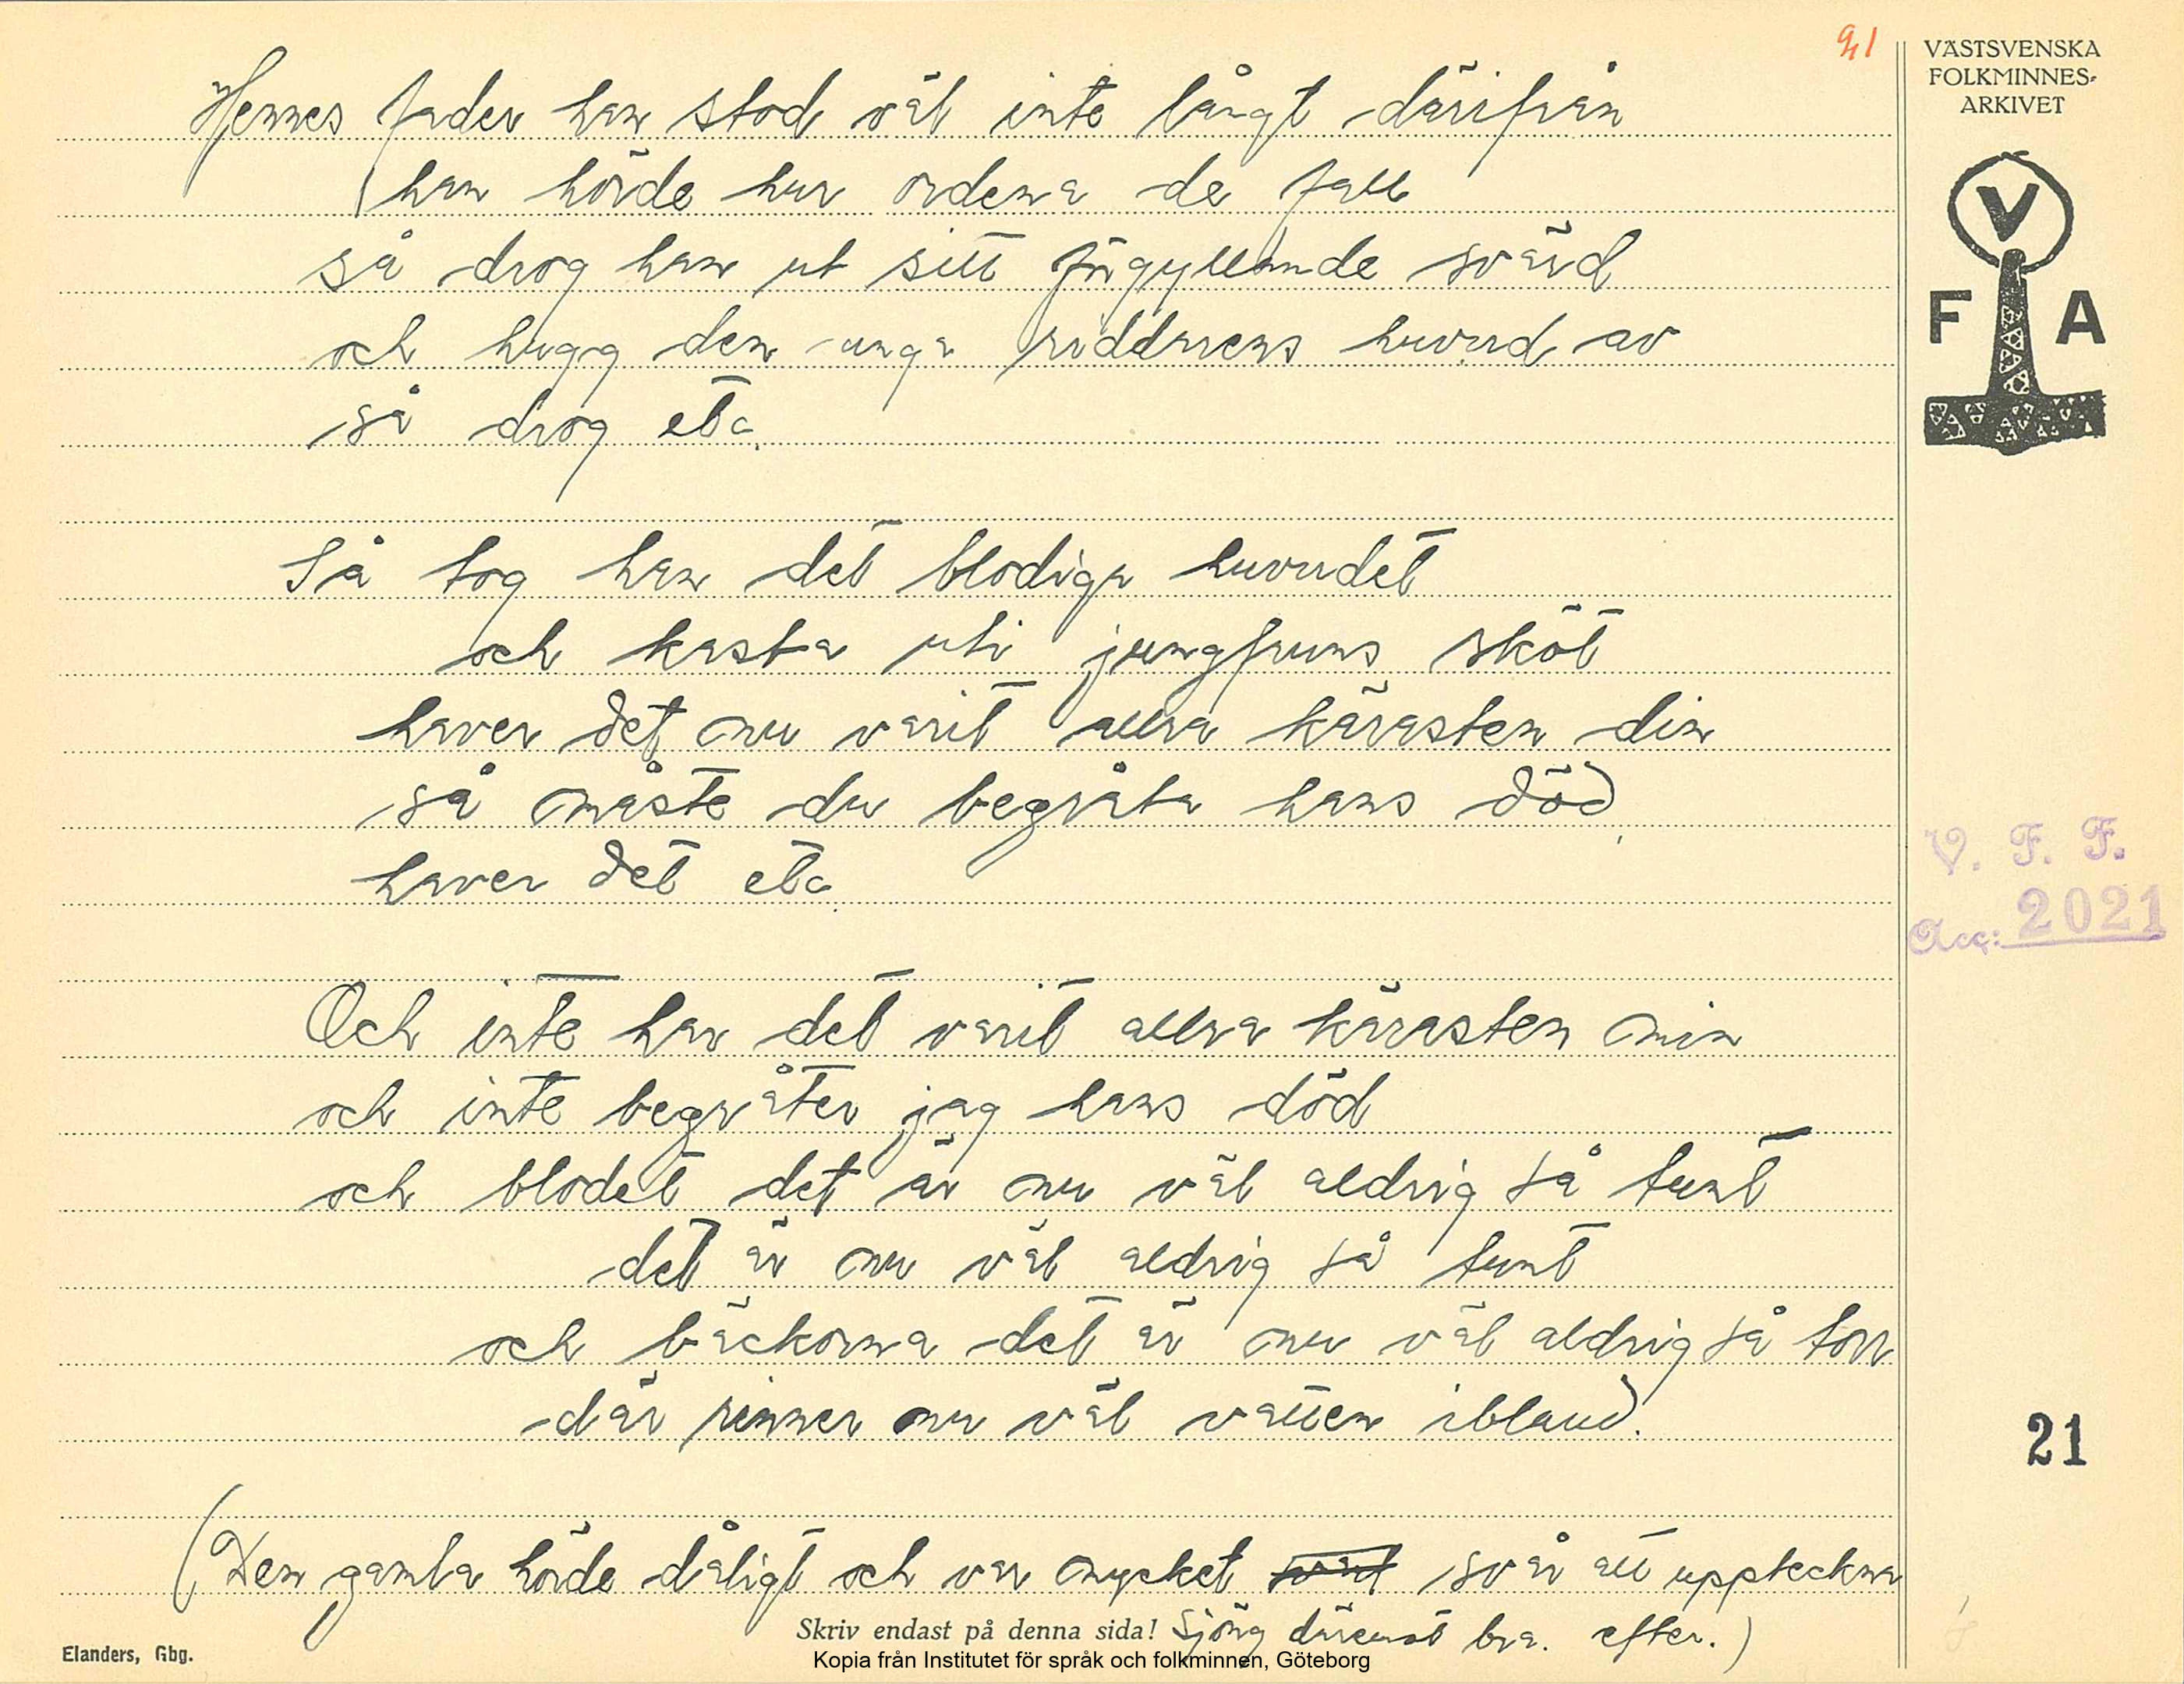 91
VÄSTSVENSKA
FOLKMINNES-
ARKIVET
V
F A
Hennes fader han stod väl inte långt därifrån
han hörde hur ordena de fall
så drog han ut sitt förgyllande svärd
och hugg den unga riddarens huvud av
så drog etc.
Så tog han det blodiga huvudet
och kasta uti jungfruns sköt
haver det nu varit allra kärasten din
så måste du begråta hans död,
haver det etc.
V. F. F.
Acc: 2021
Och inte har det varit allra kärasten min
och inte begråter jag hans död
och blodet det är nu väl aldrig så tunt
det är nu väl aldrig så tunt
och bäckorna det är nu väl aldrig så torr
där rinner nu väl vatten ibland.
21
(Den gamla hörde dåligt och var mycket svår att uppteckna
Skriv endast på denna sida! Sjöng däremot bra. efter.)
Elanders, Gbg.
Kopia från Institutet för språk och folkminnen, Göteborg